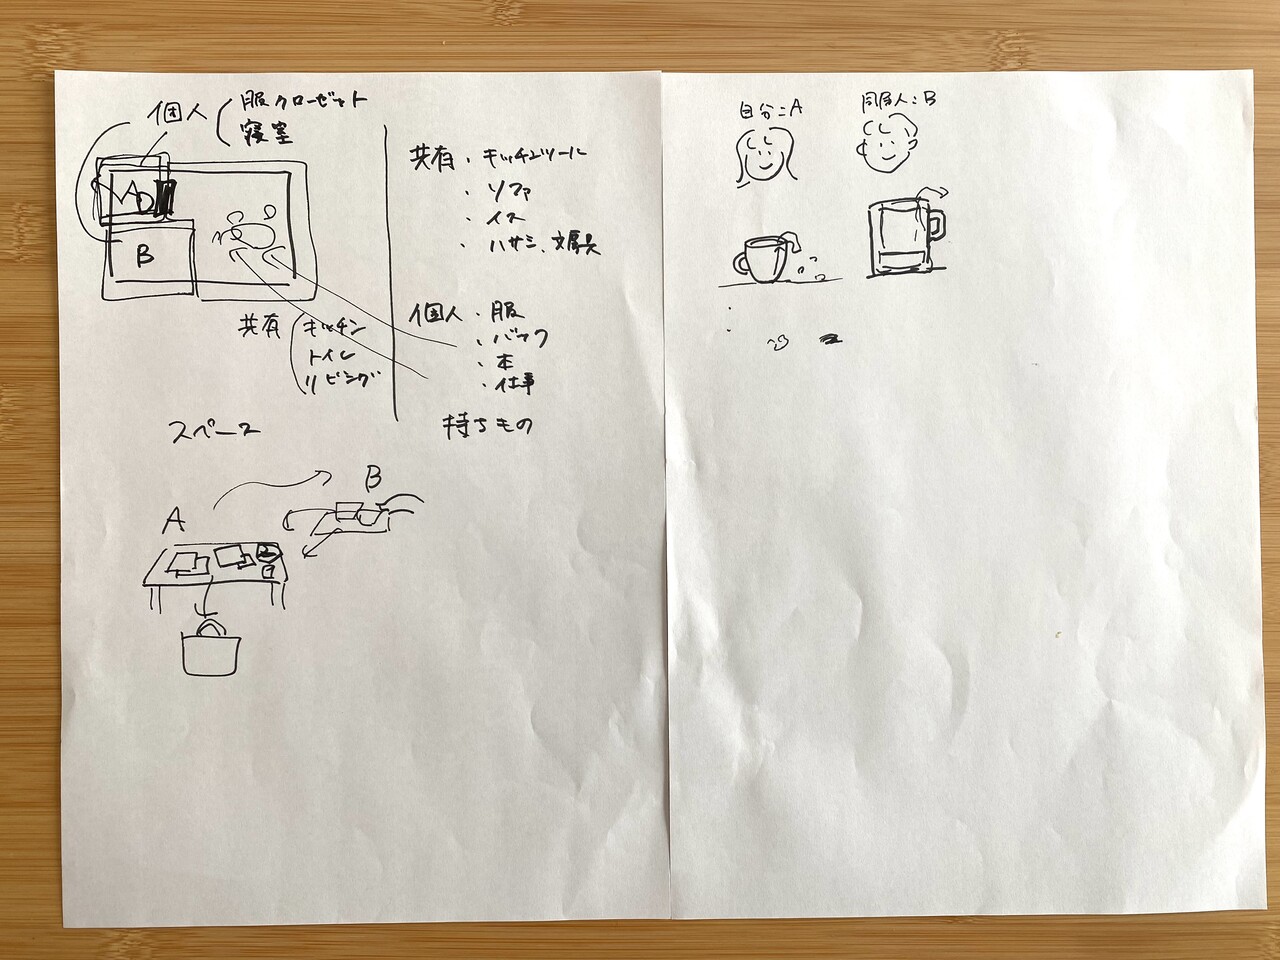 個人
服クローゼット
寝室
A
B
共有
キッチン
トイレ
リビング
スペース
共有・キッチンツール
・ソファ
・イス
・ハサミ、文房具
個人・服
・バック
・本
・仕事
持ちもの
A
B
自分：A
同居人：B